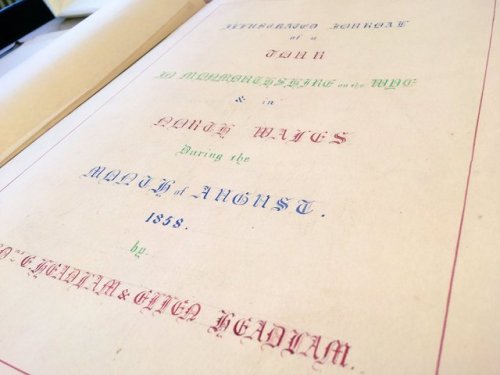 ILLUSTRATED JOURNAL
of a
TOUR
IN MONMOUTHSHIRE on the WYE
& in
NORTH WALES
During the
MONTH of AUGUST.
1858.
by
E. HEADLAM & ELLEN HEADLAM.